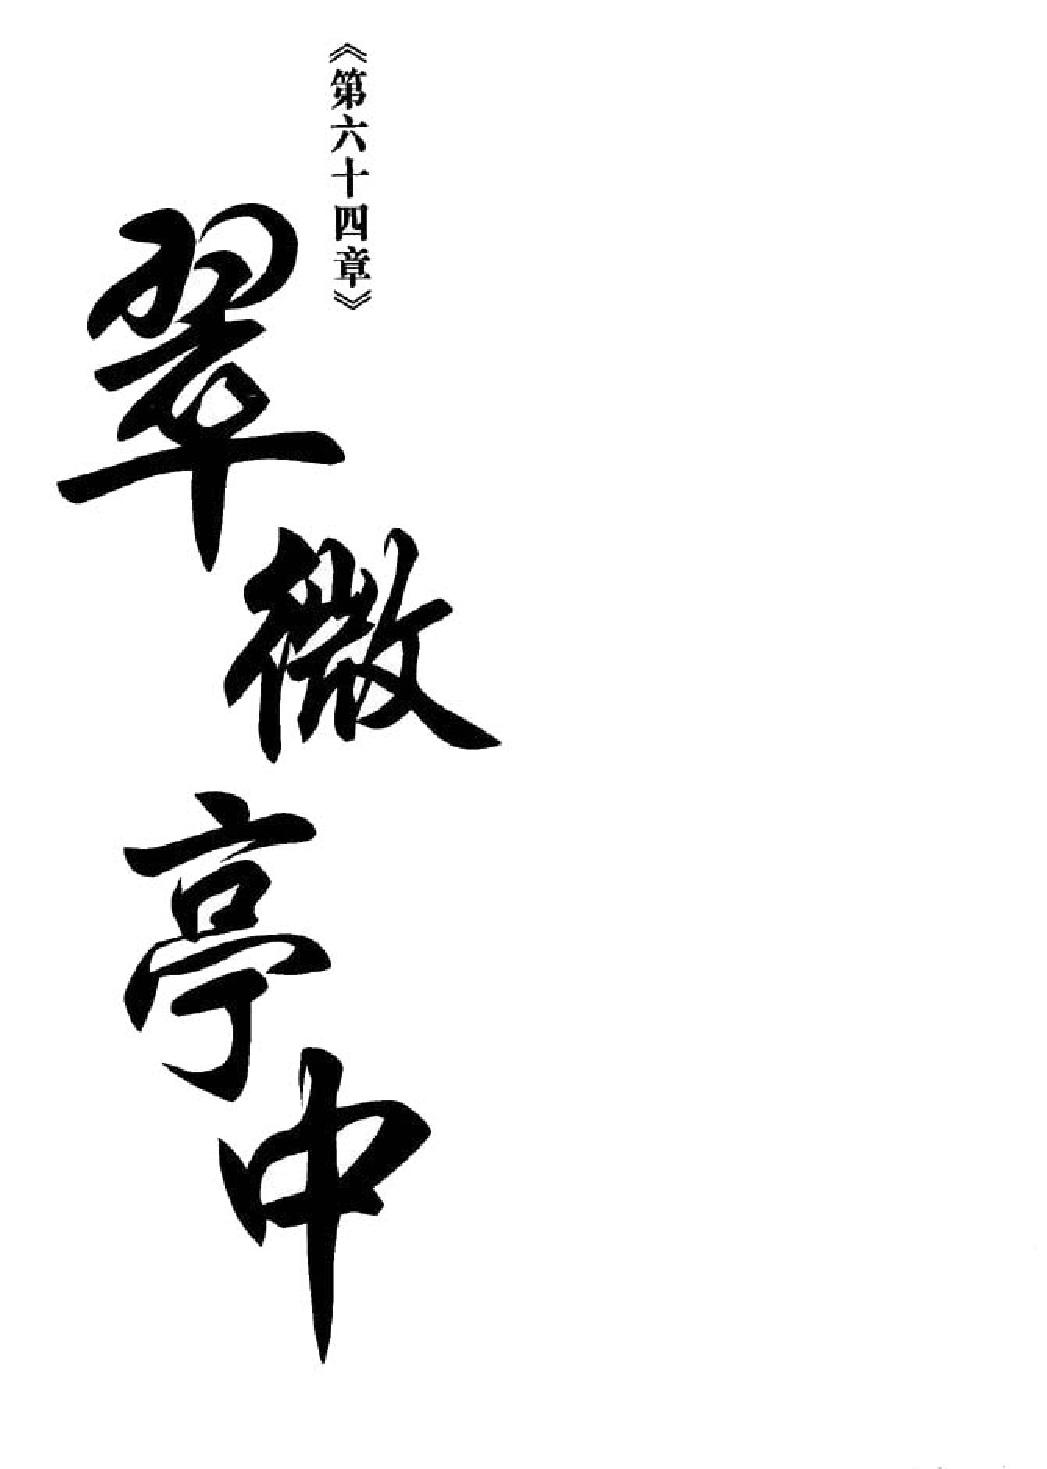 《第六十四章》
翠微亭中